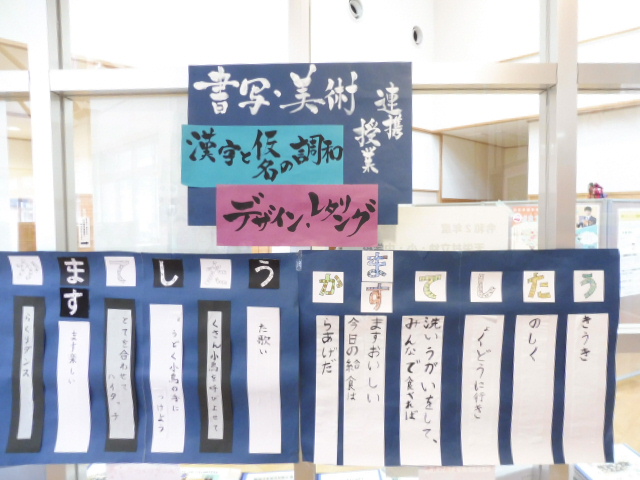 書写・美術
連携
授業
漢字と仮名の調和
デザイン、レタリング
う
きうき
た
のしく
し
ょくどうに行き
て
洗いうがいをして、
みんなで食べれば
ます
ますおいしい
今日の給食は
か
らあげだ
う
た歌い
た
くさん小鳥を呼びよせて
し
ょうどく小鳥の手に
つけよう
て
とてを合わせて
ハイタッチ
ます
ます楽しい
か
ダンス